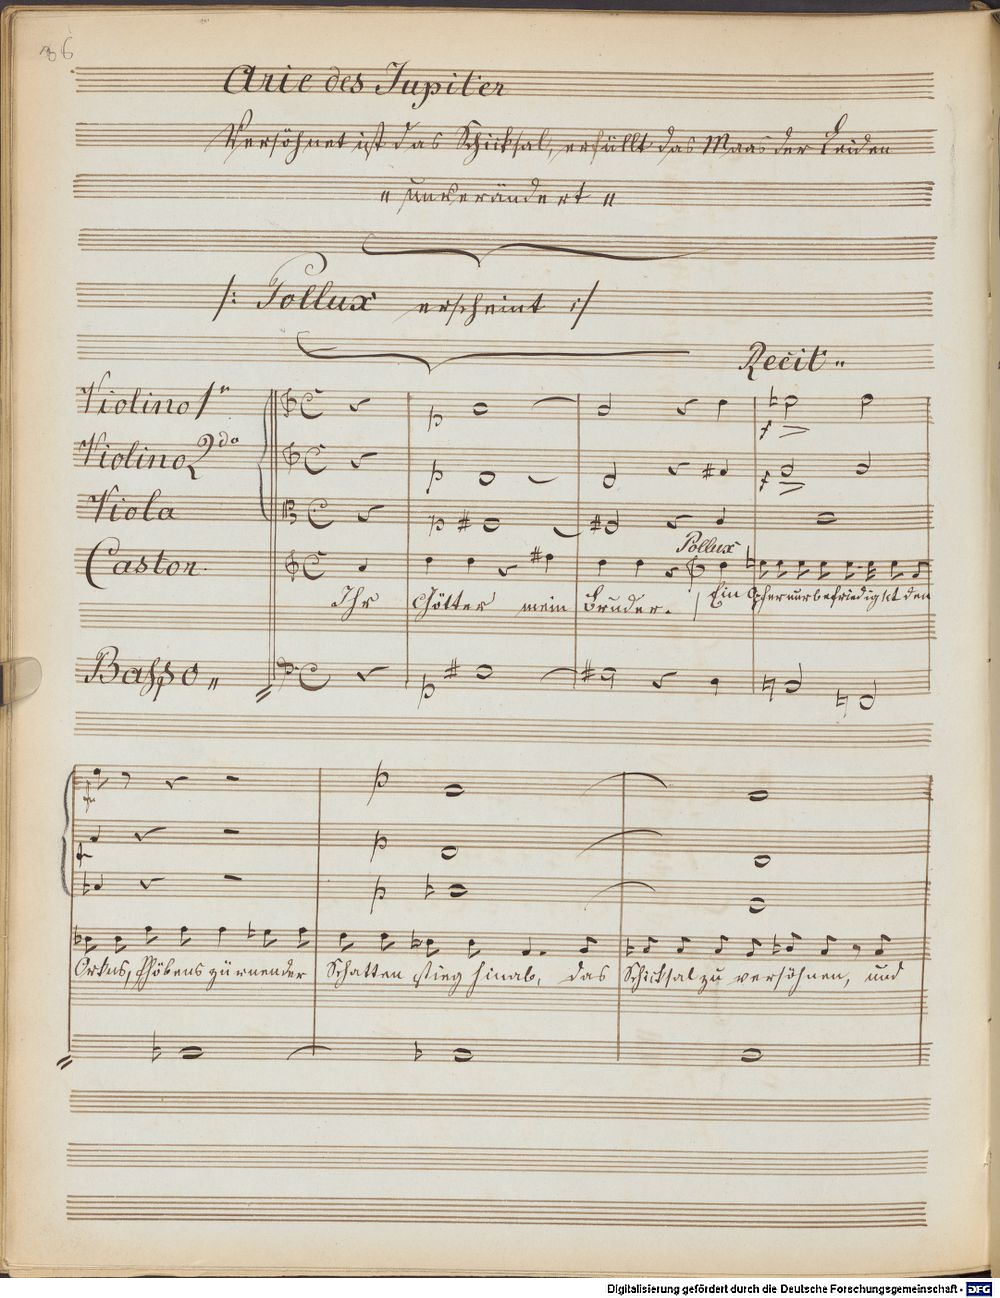 36
Arie des Jupiter
Versöhnet ist das Schicksal, erfüllt das Maas der Leiden
" unverändert "
/: Pollux erscheint :/
Recit "
Violino 1º
Violino 2do
Viola
Castor.
Pollux
Ihr Götter mein Bruder. Ein Opfer nur befriedigt den
Basso "
Orkus, Phöbens zürnender Schatten stieg hinab, das Schicksal zu versöhnen, und
Digitalisierung gefördert durch die Deutsche Forschungsgemeinschaft - DFG